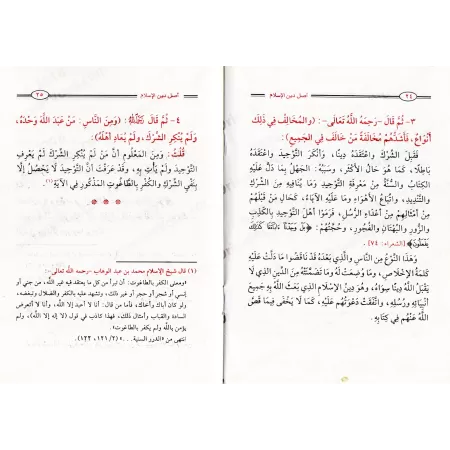 ٢٤ أصل دين الإسلام
٣- ثُمَّ قَالَ -رَحِمَهُ اللَّهُ تَعَالَى-: (وَالمُخَالِفُ فِي ذَلِكَ
أَنْوَاعٌ، فَأَشَدُّهُمْ مُخَالَفَةً مَنْ خَالَفَ فِي الجَمِيعِ):
فَقَبِلَ الشِّرْكَ وَاعْتَقَدَهُ دِينًا، وَأَنْكَرَ التَّوْحِيدَ وَاعْتَقَدَهُ
بَاطِلًا، كَمَا هُوَ حَالُ الأَكْثَرِ، وَسَبَبُهُ: الجَهْلُ بِمَا دَلَّ عَلَيْهِ
الكِتَابُ وَالسُّنَّةُ مِنْ مَعْرِفَةِ التَّوْحِيدِ وَمَا يُنَافِيهِ مِنَ الشِّرْكِ
وَالتَّنْدِيدِ، وَاتِّبَاعُ الأَهْوَاءِ وَمَا عَلَيْهِ الآبَاءُ، كَحَالِ مَنْ قَبْلَهُمْ
مِنْ أَمْثَالِهِمْ مِنْ أَعْدَاءِ الرُّسُلِ، فَرَمَوْا أَهْلَ التَّوْحِيدِ بِالكَذِبِ
وَالزُّورِ وَالبُهْتَانِ وَالفُجُورِ، وَحُجَّتُهُمْ: ﴿بَلْ وَجَدْنَا آبَاءَنَا كَذَلِكَ
يَفْعَلُونَ﴾ [الشعراء: ٧٤].
وَهَذَا النَّوْعُ مِنَ النَّاسِ وَالَّذِي بَعْدَهُ قَدْ نَاقَضُوا مَا دَلَّتْ عَلَيْهِ
كَلِمَةُ الإِخْلَاصِ، وَمَا وُضِعَتْ لَهُ وَمَا تَضَمَّنَتْهُ مِنَ الدِّينِ الَّذِي لَا
يَقْبَلُ اللَّهُ دِينًا سِوَاهُ، وَهُوَ دِينُ الإِسْلَامِ الَّذِي بَعَثَ اللَّهُ بِهِ جَمِيعَ
أَنْبِيَائِهِ وَرُسُلِهِ، وَاتَّفَقَتْ دَعْوَتُهُمْ عَلَيْهِ، كَمَا لَا يَخْفَى فِيمَا قَصَّ
اللَّهُ عَنْهُمْ فِي كِتَابِهِ.
أصل دين الإسلام ٢٥
٤- ثُمَّ قَالَ رَحِمَهُ اللَّهُ: (وَمِنَ النَّاسِ: مَنْ عَبَدَ اللَّهَ وَحْدَهُ،
وَلَمْ يُنْكِرِ الشِّرْكَ، وَلَمْ يُعَادِ أَهْلَهُ):
قُلْتُ: وَمِنَ المَعْلُومِ أَنَّ مَنْ لَمْ يُنْكِرِ الشِّرْكَ لَمْ يَعْرِفِ
التَّوْحِيدَ وَلَمْ يَأْتِ بِهِ، وَقَدْ عَرَفْتَ أَنَّ التَّوْحِيدَ لَا يَحْصُلُ إِلَّا
بِنَفْيِ الشِّرْكِ وَالكُفْرِ بِالطَّاغُوتِ المَذْكُورِ فِي الآيَةِ(١).
* * *
(١) قال شيخ الإسلام محمد بن عبد الوهاب -رحمه الله تعالى-:
«ومعنى الكفر بالطاغوت: أن تبرأ من كل ما يعتقد فيه غير الله، من جني أو
إنسي أو شجر أو حجر أو غير ذلك، وتشهد عليه بالكفر والضلال وتبغضه،
ولو كان أباك أو أخاك، فأما من قال: أنا لا أعبد إلا الله، وأنا لا أتعرض
السادة والقباب وأمثال ذلك، فهذا كاذب في قول (لا إله إلا الله)، ولم
يؤمن بالله ولم يكفر بالطاغوت».
انتهى من «الدرر السنية...» (٢/ ١٢١، ١٢٢).